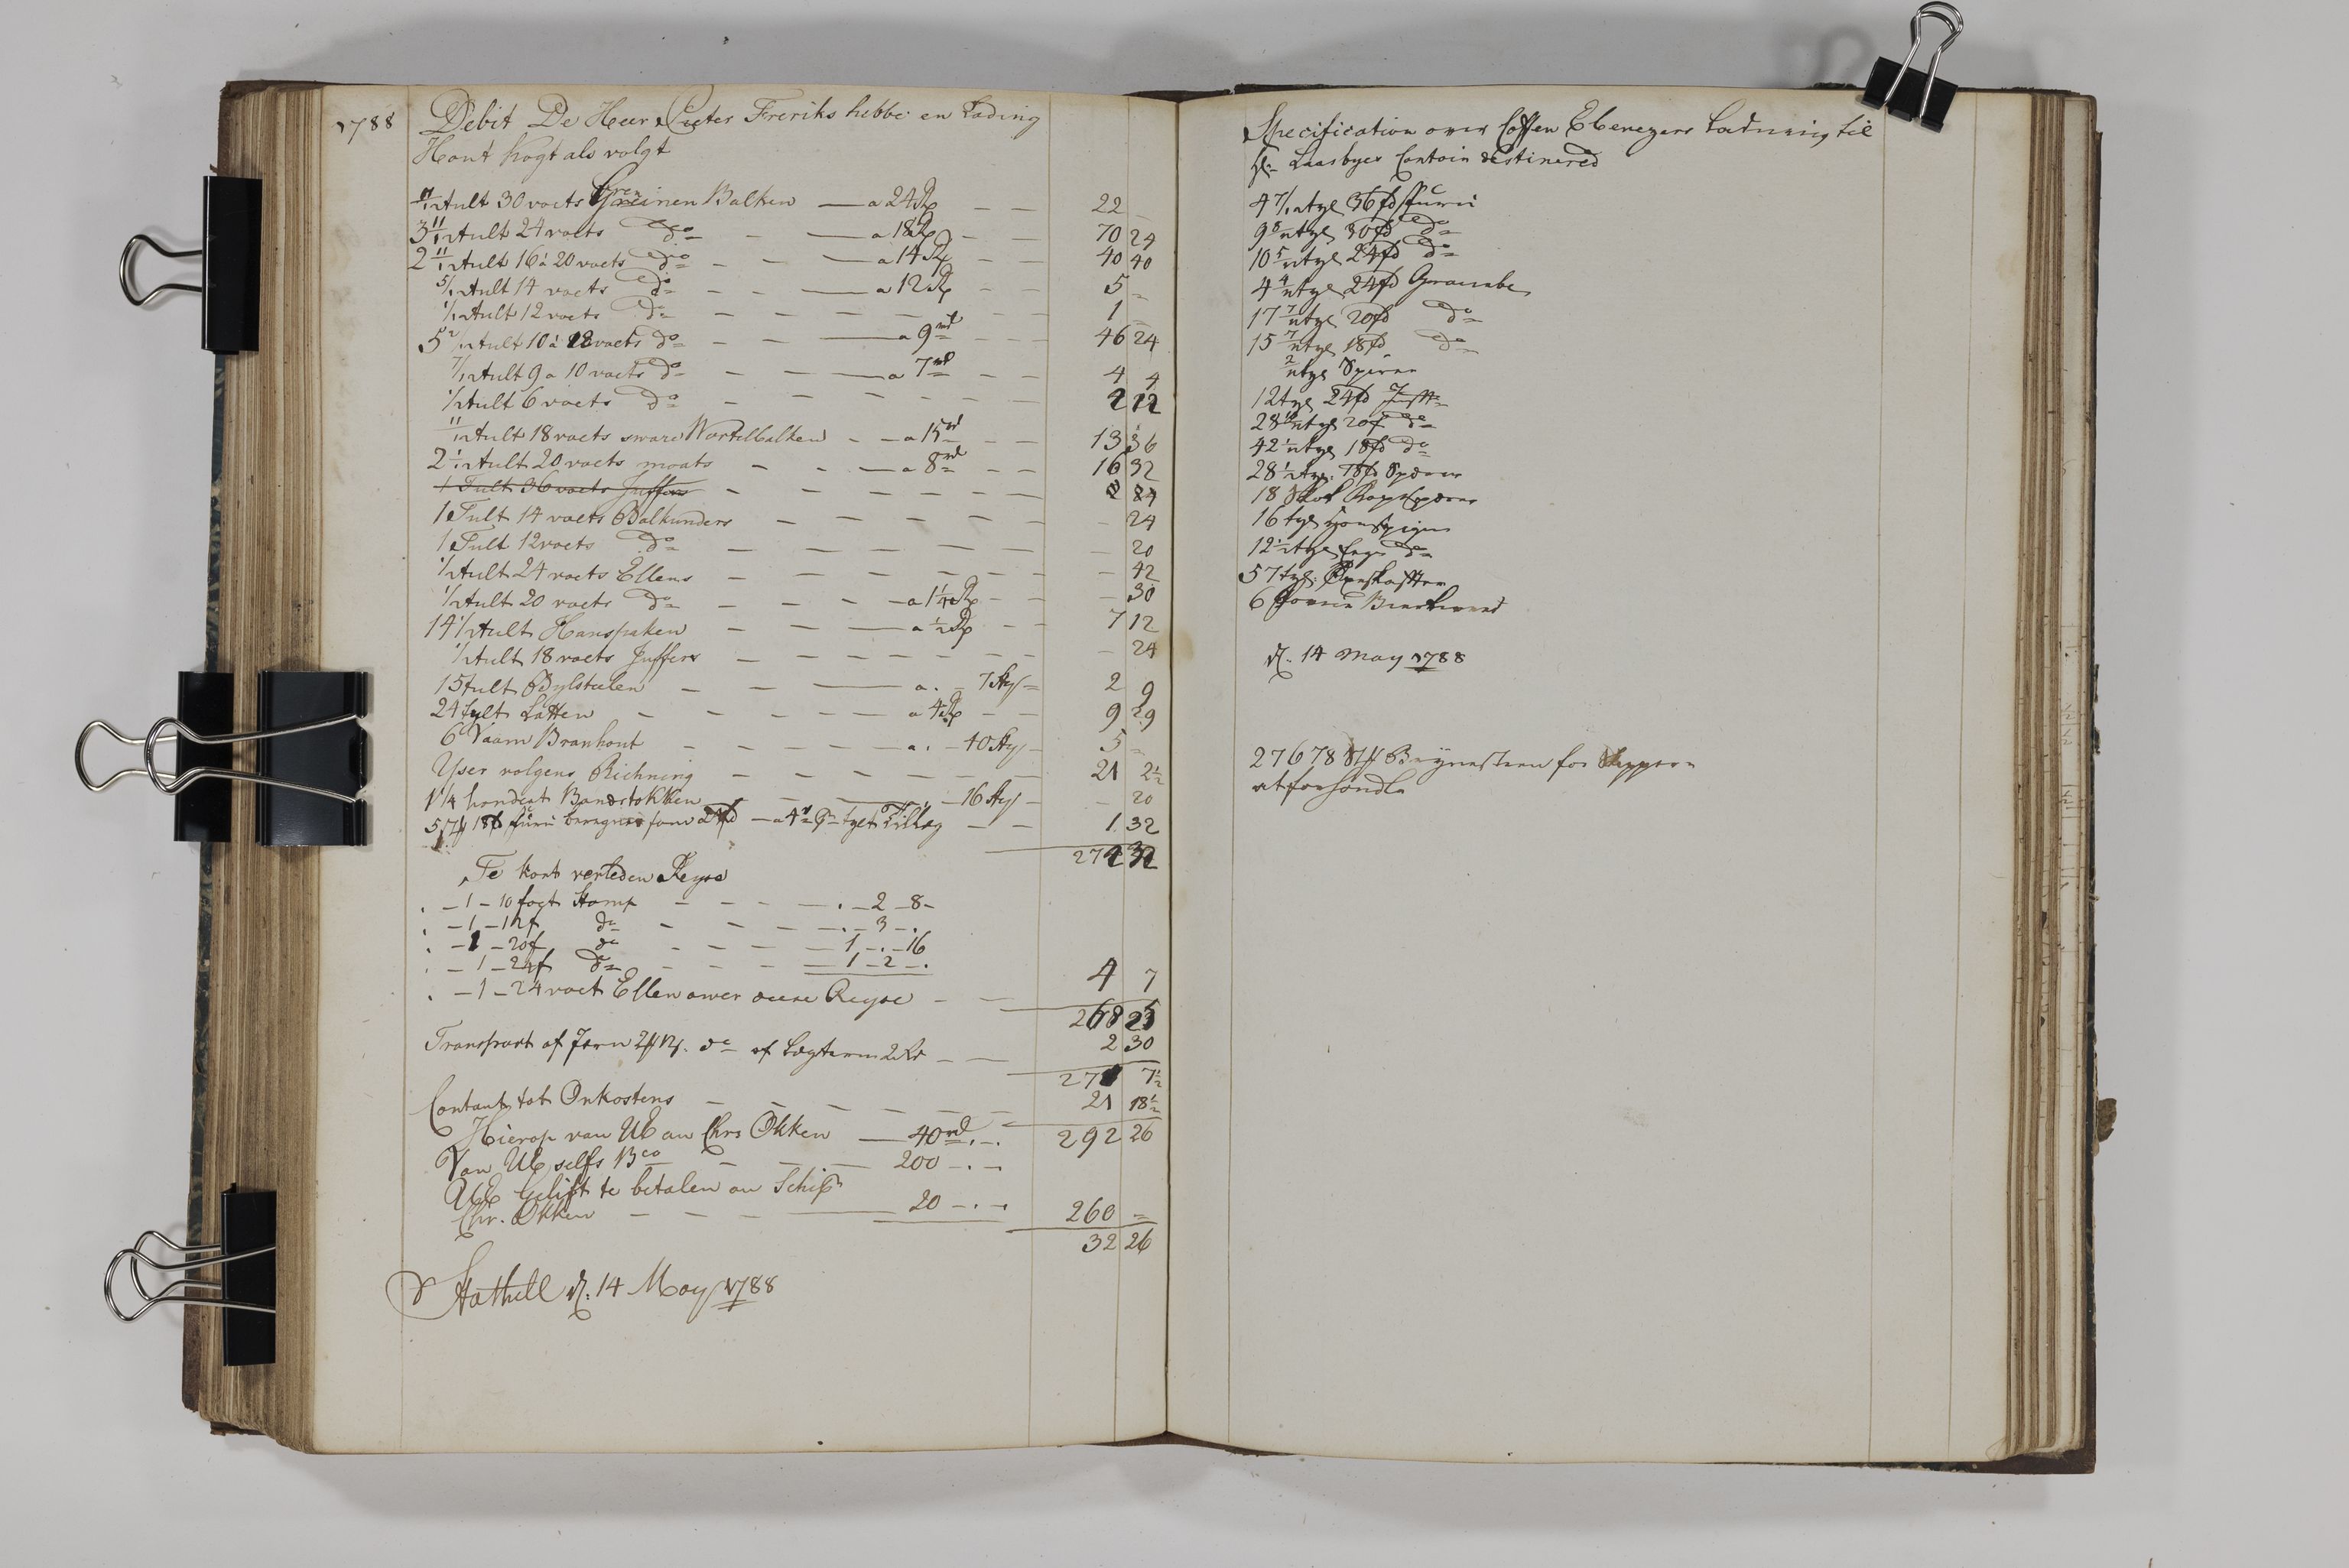 1788 Debit De Heer Pieter Freriks hebbe en Lading
Hont kogt als volgt
11/12 tult 30 voets Greinen Balken — a 24 R — 22 –
3 11/12 tult 24 voets do — a 18 R — 70 24
2 11/12 tult 16 a 20 voets do — a 14 R — 40 40
5/12 tult 14 voets do — a 12 R — 5 –
1/12 tult 12 voets do — 1 –
5 2/12 tult 10 a 12 voets do — a 9 rd — 46 24
7/12 tult 9 a 10 voets do — a 7 rd — 4 4
1/2 tult 6 voets do — 2 12
11/12 tult 18 voets sware Wortelbalken — a 15 rd — 13 36
2 1/12 tult 20 voets moats — a 8 rd — 16 32
1 Tult 36 voets Juffers — 2 24
1 Tult 14 voets Balkunders — – 24
1 Tult 12 voets do — – 20
1/2 tult 24 voets Ellens — – 42
1/2 tult 20 voets do — a 1 1/4 R — – 30
14 1/2 tult Hanspaken — a 1/2 R — 7 12
1/2 tult 18 voets Juffers — – 24
15 tult Bylstelen — a . – 7 Sty — 2 9
24 tylt Latten — a 4 R — 9 29
6 Vaam Branhout — a . – 40 Sty — 5 –
Yser volgens Richning — 21 2 1/2
1 1/4 hondert Bandstokken — 16 Sty — – 20
furu 24 fd — a 4 Tillæg — 1 32
274 32
Te kort verleden Reyse
– 1 – 10 fogt Stomp — . – 2 – 8 –
– 1 – 12 f do — . – 3 – .
– 1 – 20 f do — 1 – . – 16
– 1 – 24 f do — 1 – 2 – .
4 7
– 1 – 24 voet Ellen over deese Reyse —
268 25
Transport af Jern do af Lægterne 2 Rd — 2 30
271 7 1/2
Contant tot Onkostens — 21 18 1/2
Hierop van UE an Chrs Okken — 40 rd . – . 292 26
Van UE selfs Bco — 200 – . –
UE belift te betalen an Schip
Chr. Okken — 20 – . – 260 =
32 26
Stathell d. 14 May 1788
Specification over Coffen Ebenezers Ladning til
Hr. Laasbyes Contoir destinered
4 7/12 tyl 36 fd furu
9 8/12 tyl 30 fd do
10 5/12 tyl 24 fd do
4 4/12 tyl 24 fd Granebe
17 7/12 tyl 20 fd do
15 7/12 tyl 18 fd do
2/12 tyl Spirer
12 tyl 24 fd
28 tyl 20 f do
42 1/2 tyl 18 fd do
28 1/2 tyl. 18 fd Spærer
18
16 tyl Hanspiger
12 1/2 tyl do
57 tyl.
6 Favne Brendeveed
d. 14 May 1788
27678 for Skipper
at forhandle